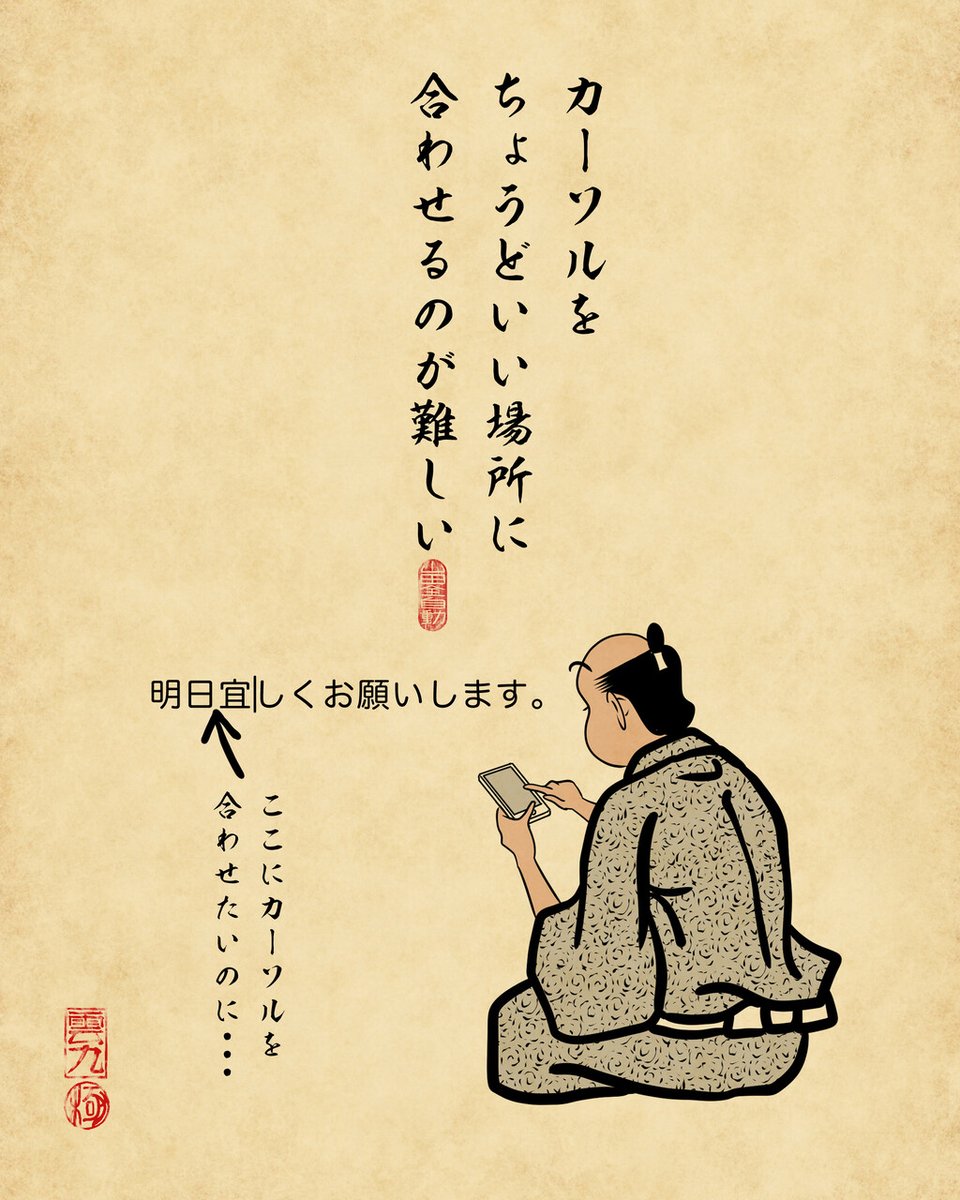 カーソルを
ちょうどいい場所に
合わせるのが難しい
明日宜しくお願いします。
ここにカーソルを
合わせたいのに・・・